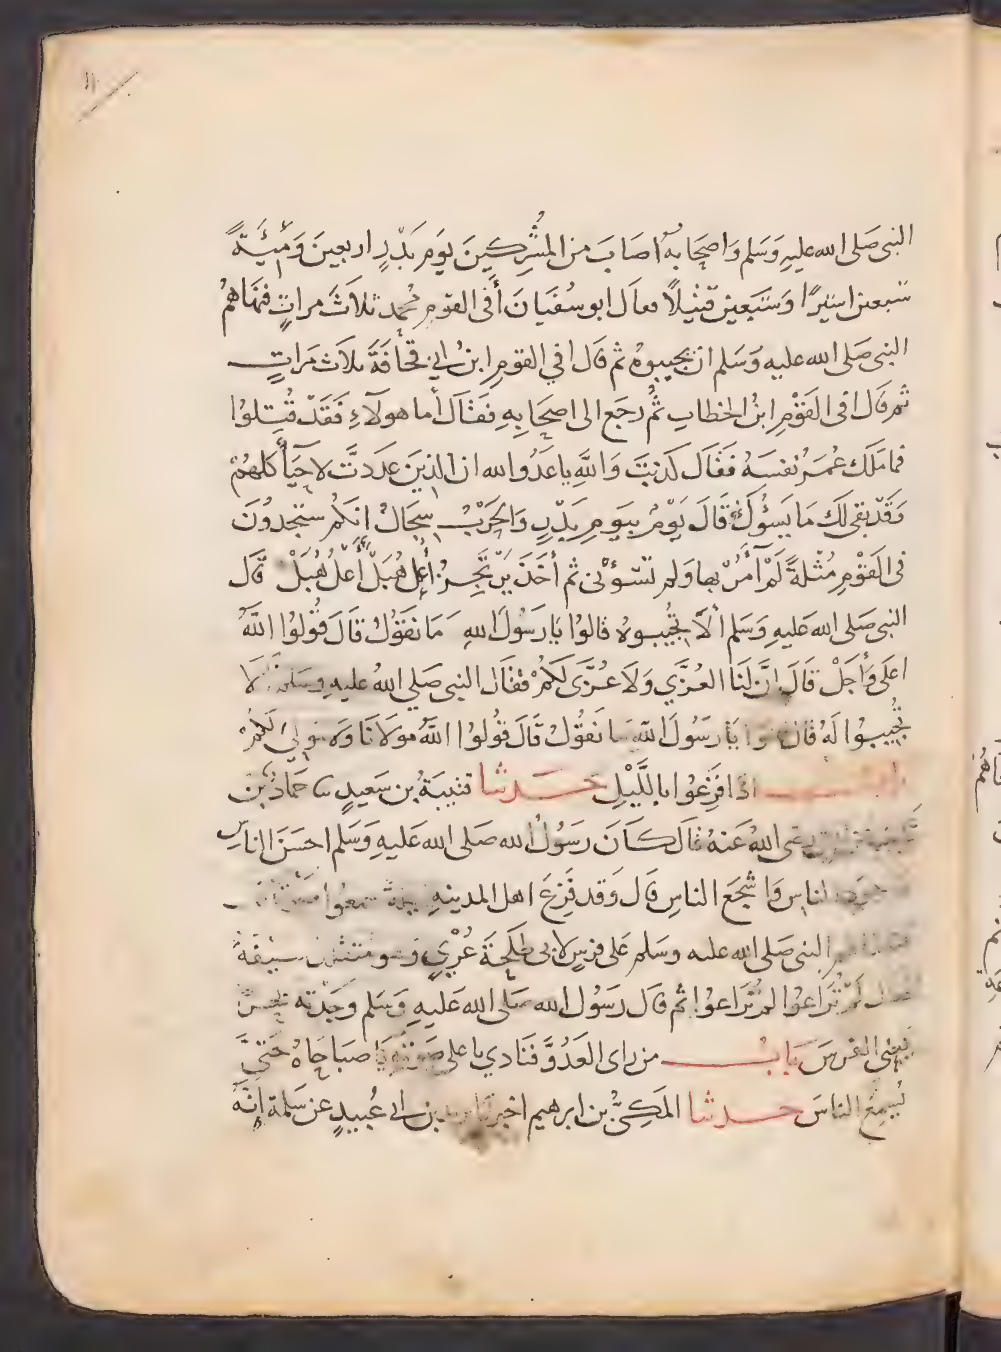 ١١
النبى صَلى الله عليهِ وَسَلم وَاصحَابهُ اصَابَ من المشُرِكينَ يَومَ بَدْرٍ اربعينَ وَمِئَةً
سَبعين اسيرًا وَسَبعين قتيلاً فعال ابو سُفيَانَ أفى القومِ محُمد ثلاثَ مراتٍ فنهَاهمُ
النبى صَلى الله عليه وَسَلم ان يجيبوهُ ثم قال افي القومِ ابنُ ابى قُحَافَةَ ثلاث مَراتٍ
ثم قال افى القَوْمِ ابنُ الخطابِ ثمُ رجَع الى اصحَابِهِ فقَال أما هولآءِ فَقَدْ قُتِلوُا
فما مَلكَ عُمَرُ نفسَهُ فَقَال كَذبتَ وَاللَّهِ ياعَدُو الله ان الذينَ عدَدتَّ لاحيَأ كلهُمْ
وَقَدْ بقى لكَ مَا يَسؤُكَ قَالَ يَوْمُ بيَومِ بَدْرٍ وَالحَرْبُ سِجَالٌ انكم ستجدُونَ
فى القَوْمِ مُثْلةً لَمْ آمُرْ بها وَلم تسؤنى ثم أخَذَ يَرتَجِزُ أعْلُ هُبَلْ أعْلُ هُبَلْ قال
النبى صَلى الله عَليهِ وَسَلم ألاَ تجُيبوهُ قالوُا يَا رَسُولَ اللهِ مَا نقوُلُ قالَ قُولوُا اللَّهُ
اعلَى وَأجَلْ قالَ انَّ لنَا العُزَّي وَلاَ عُزَّى لكُمْ فقال النبى صَلي اللهُ عليهِ وسَلم ألا
تجُيبوُا لهُ قال قالوا يَا رَسُولَ اللهِ مَا نقُولُ قالَ قُولوُا اللَّهُ مَولانَا وَلا مَولىَ لكمُ
باب اذا فزعُوا باللَّيْلِ حَدثنا قتيبَةُ بن سَعيدٍ ثنا حَمادُ بن
رضى اللهُ عَنهُ قال كانَ رَسُولُ الله صَلى الله عَليهِ وَسَلم احسَنَ الناسِ
الناسِ وَاشجَعَ الناسِ قال وَقد فَزِعَ اهل المدينهِ ليلةً سَمعُوا
النبى صَلى الله عليه وسَلم عَلى فرسٍ لابى طلحَةَ عُرْيٍ وَهو متقلد سيفهُ
فقال لَمْ تُرَاعوُا لم تُرَاعوُا ثم قال رَسُول الله صَلى الله عَليهِ وَسَلم وَجَدْته بحرًا
يعنى الفرسَ بَابُ من راى العَدُوَّ فنادي باعلى صَوتِه يا صبَاحَاهُ حَتىَّ
يُسمِعُ الناسَ حَدثنا المَكيُّ بن ابرهيم اخبرنا يزيد بن ابى عُبيدٍ عن سَلمةَ إنَّهُ